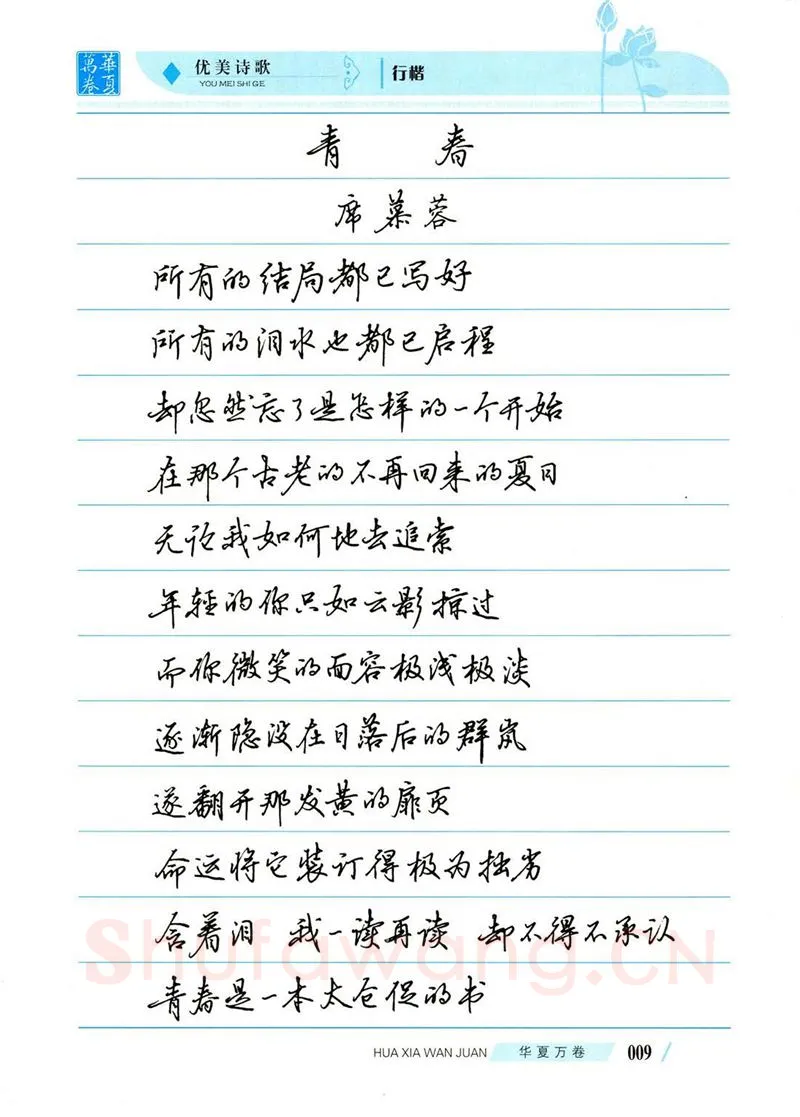 華夏萬卷
优美诗歌
YOU MEI SHI GE
行楷
青 春
席慕蓉
所有的结局都已写好
所有的泪水也都已启程
却忽然忘了是怎样的一个开始
在那个古老的不再回来的夏日
无论我如何地去追索
年轻的你只如云影掠过
而你微笑的面容极浅极淡
逐渐隐没在日落后的群岚
遂翻开那发黄的扉页
命运将它装订得极为拙劣
含着泪 我一读再读 却不得不承认
青春是一本太仓促的书
Shufawang.CN
HUA XIA WAN JUAN
华夏万卷
009